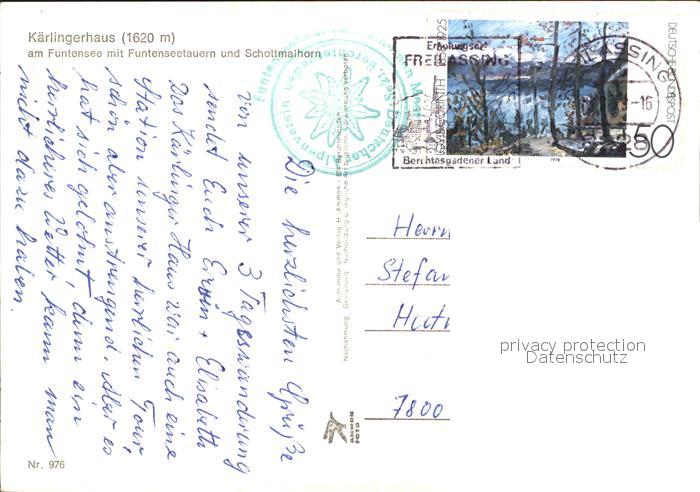 Kärlingerhaus (1620 m)
am Funtensee mit Funtenseetauern und Schottmalhorn
Die herzlichsten Grüße
von unserer 3 Tageswanderung
sendet Euch Erwin + Elisabeth
Das Kärlinger Haus war auch eine
Station unserer herrlichen Tour
schön aber anstrengend. Aber es
hat sich gelohnt, denn ein
herrlicheres Wetter kann man
nicht dazu haben.
Nr. 976
Erholungsort
FREILASSING
Berchtesgadener Land
LASSING
-16
DEUTSCHE BUNDESPOST
LOVIS CORINTH 1858-1925
50
1978
AMMON
FOTO
Herrn
Stefan
7800
privacy protection
Datenschutz